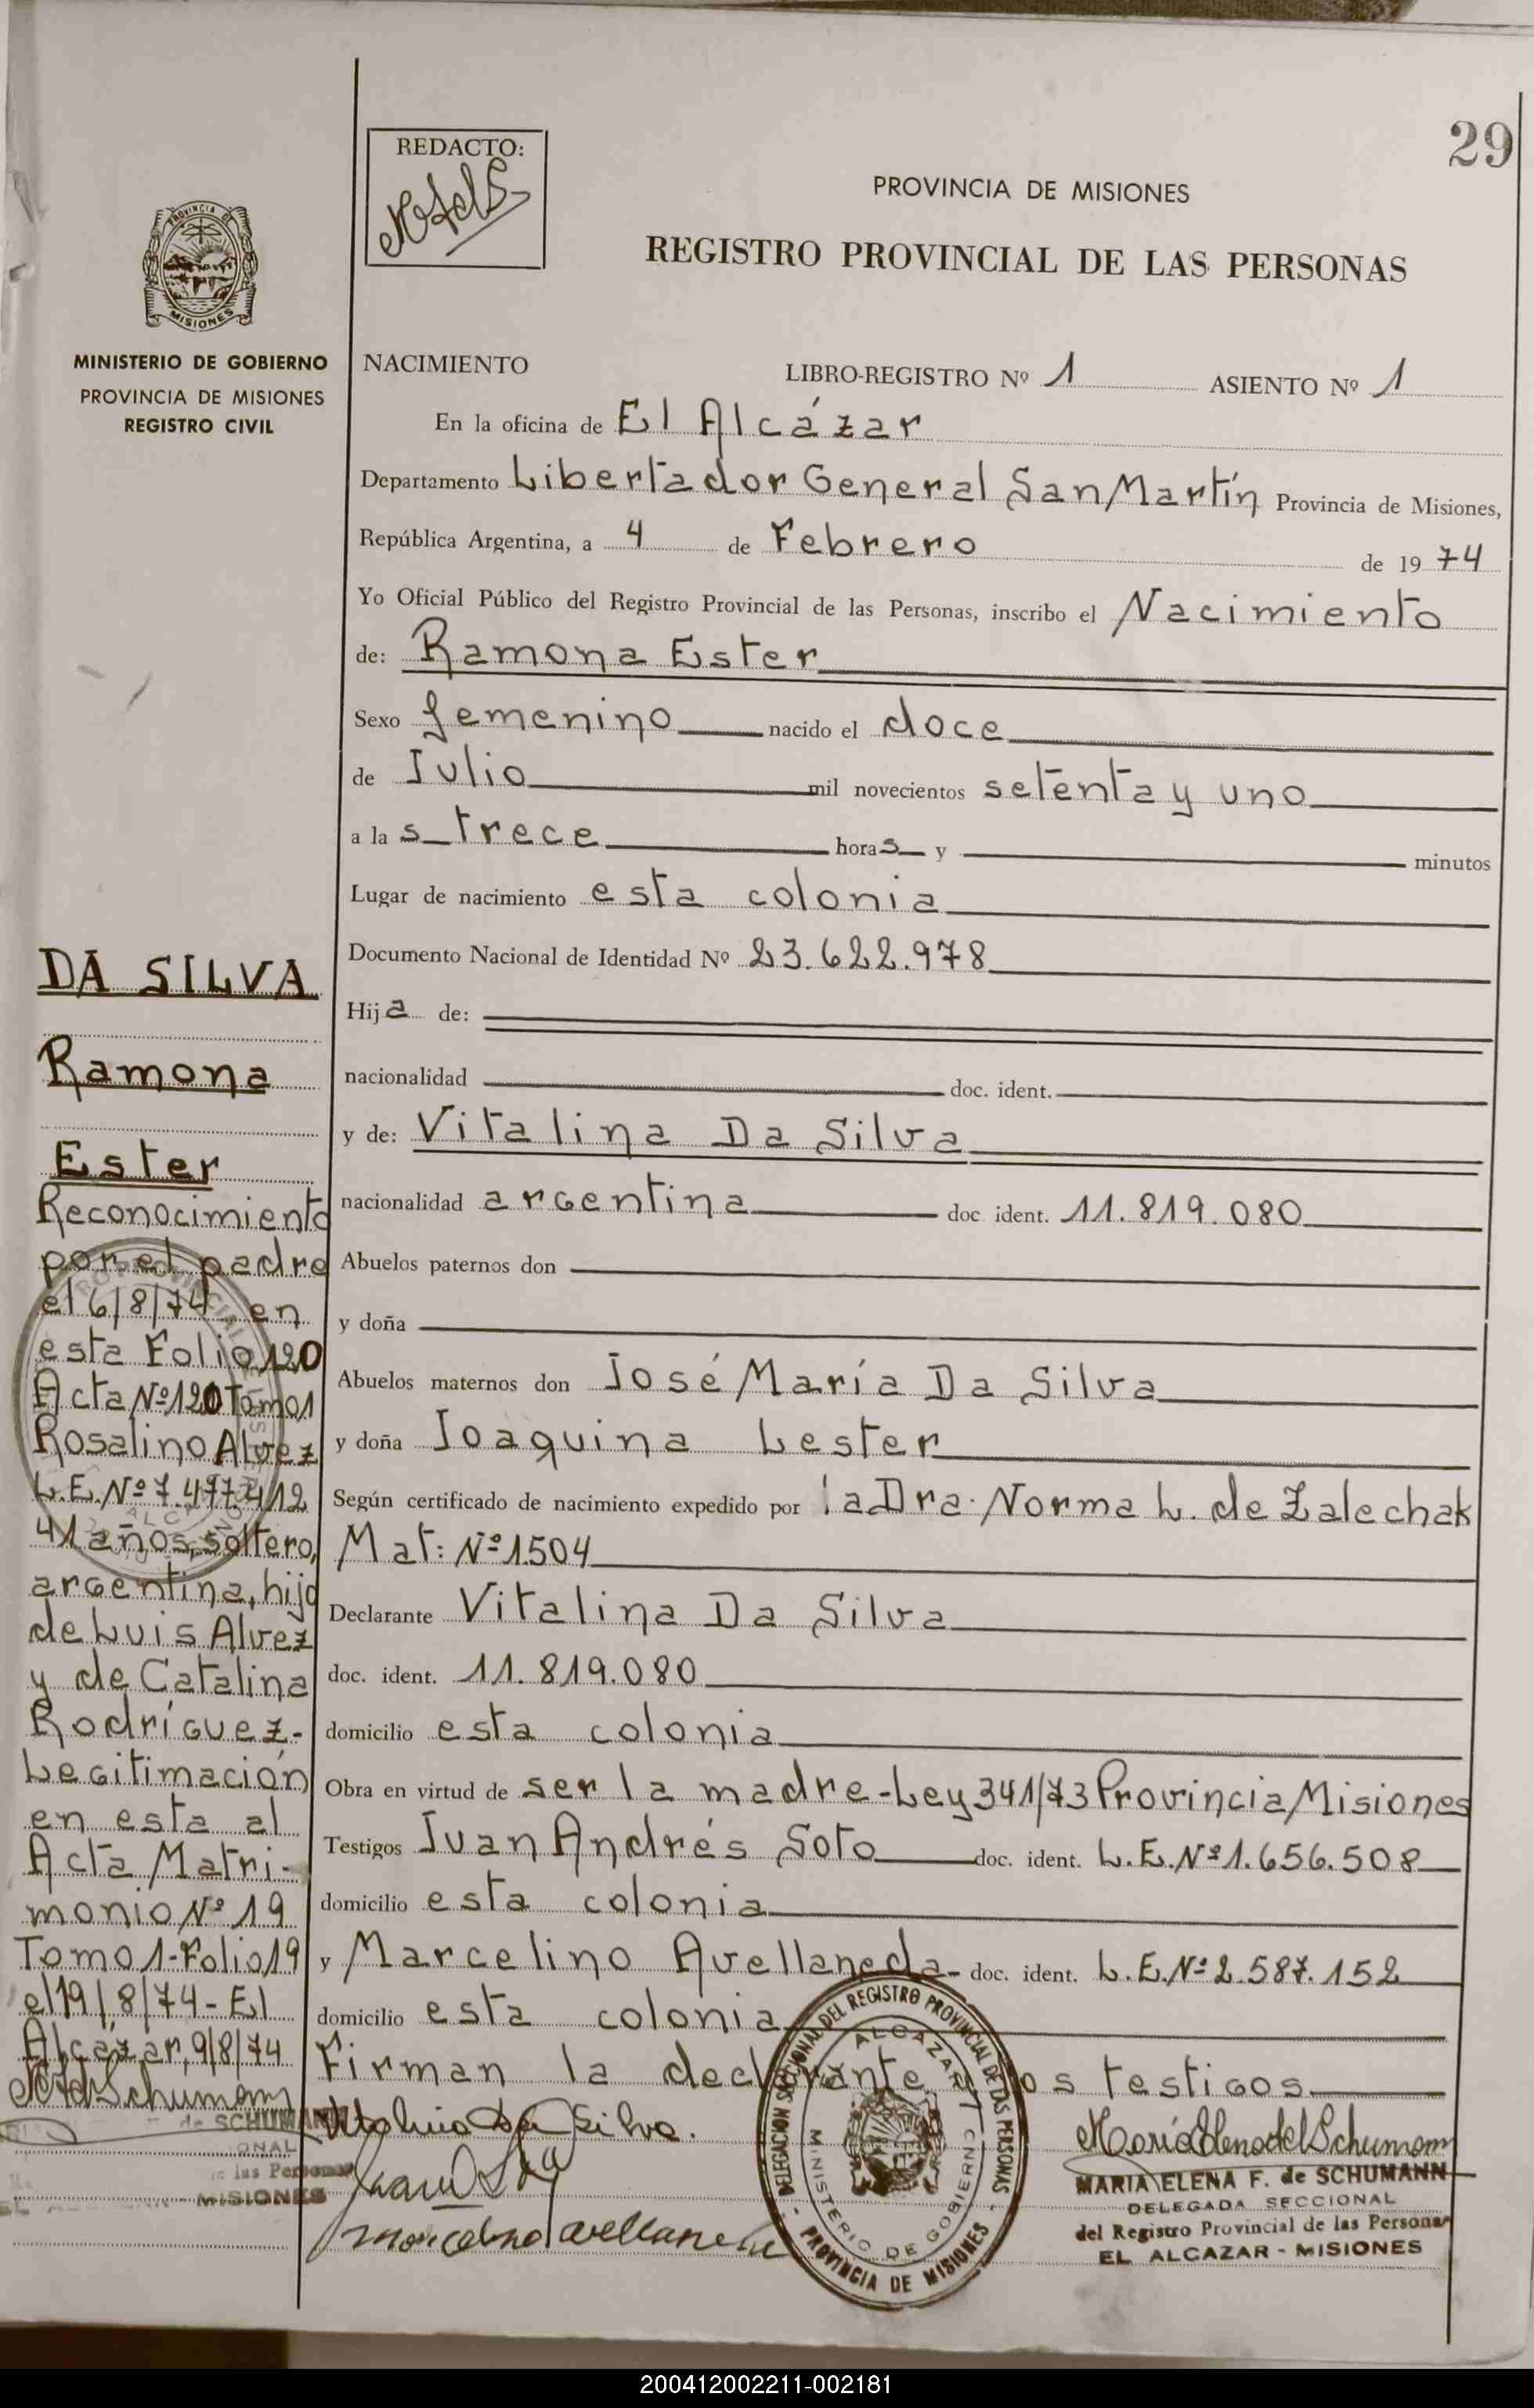 29
REDACTO:
PROVINCIA DE MISIONES
REGISTRO PROVINCIAL DE LAS PERSONAS
PROVINCIA DE
MISIONES
MINISTERIO DE GOBIERNO
PROVINCIA DE MISIONES
REGISTRO CIVIL
NACIMIENTO LIBRO-REGISTRO Nº 1 ASIENTO Nº 1
En la oficina de El Alcázar
Departamento Libertador General San Martín Provincia de Misiones,
República Argentina, a 4 de Febrero de 1974
Yo Oficial Público del Registro Provincial de las Personas, inscribo el Nacimiento
de: Ramona Ester
Sexo femenino nacido el doce
de Julio mil novecientos setenta y uno
a las trece horas y minutos
Lugar de nacimiento esta colonia
Documento Nacional de Identidad Nº 23.622.978
Hija de:
nacionalidad doc. ident.
y de: Vitalina Da Silva
nacionalidad argentina doc ident. 11.819.080
Abuelos paternos don
y doña
Abuelos maternos don José María Da Silva
y doña Joaquina Lester
Según certificado de nacimiento expedido por la Dra. Norma L. de Zalechak
Mat: Nº 1504
Declarante Vitalina Da Silva
doc. ident. 11.819.080
domicilio esta colonia
Obra en virtud de ser la madre-Ley 341/73 Provincia Misiones
Testigos Juan Andrés Soto doc. ident. L.E.Nº 1.656.508
domicilio esta colonia
y Marcelino Avellaneda- doc. ident. L.E.Nº 2.587.152
domicilio esta colonia
Firman la declarante los testigos
DA SILVA
Ramona
Ester
Reconocimiento
por el padre
el 6/8/74 en
esta Folio 120
Acta Nº 120 Tomo 1
Rosalino Alvez
L.E. Nº 7.477.412
41 años, soltero,
argentina, hijo
de Luis Alvez
y de Catalina
Rodríguez-
Legitimación
en esta al
Acta Matri-
monio Nº 19
Tomo 1-Folio 19
el 19/8/74-El
Alcázar, 9/8/74
de SCHUMANN
ONAL
las Personas
MISIONES
Vitalina Da Silva.
Juan Soto
Marcelino Avellaneda
DELEGACION SECCIONAL DEL REGISTRO PROVINCIAL DE LAS PERSONAS
- PROVINCIA DE MISIONES -
ALCAZAR
MINISTERIO DE GOBIERNO
María Elena de Schumann
MARIA ELENA F. de SCHUMANN
DELEGADA SECCIONAL
del Registro Provincial de las Personas
EL ALCAZAR - MISIONES
200412002211-002181